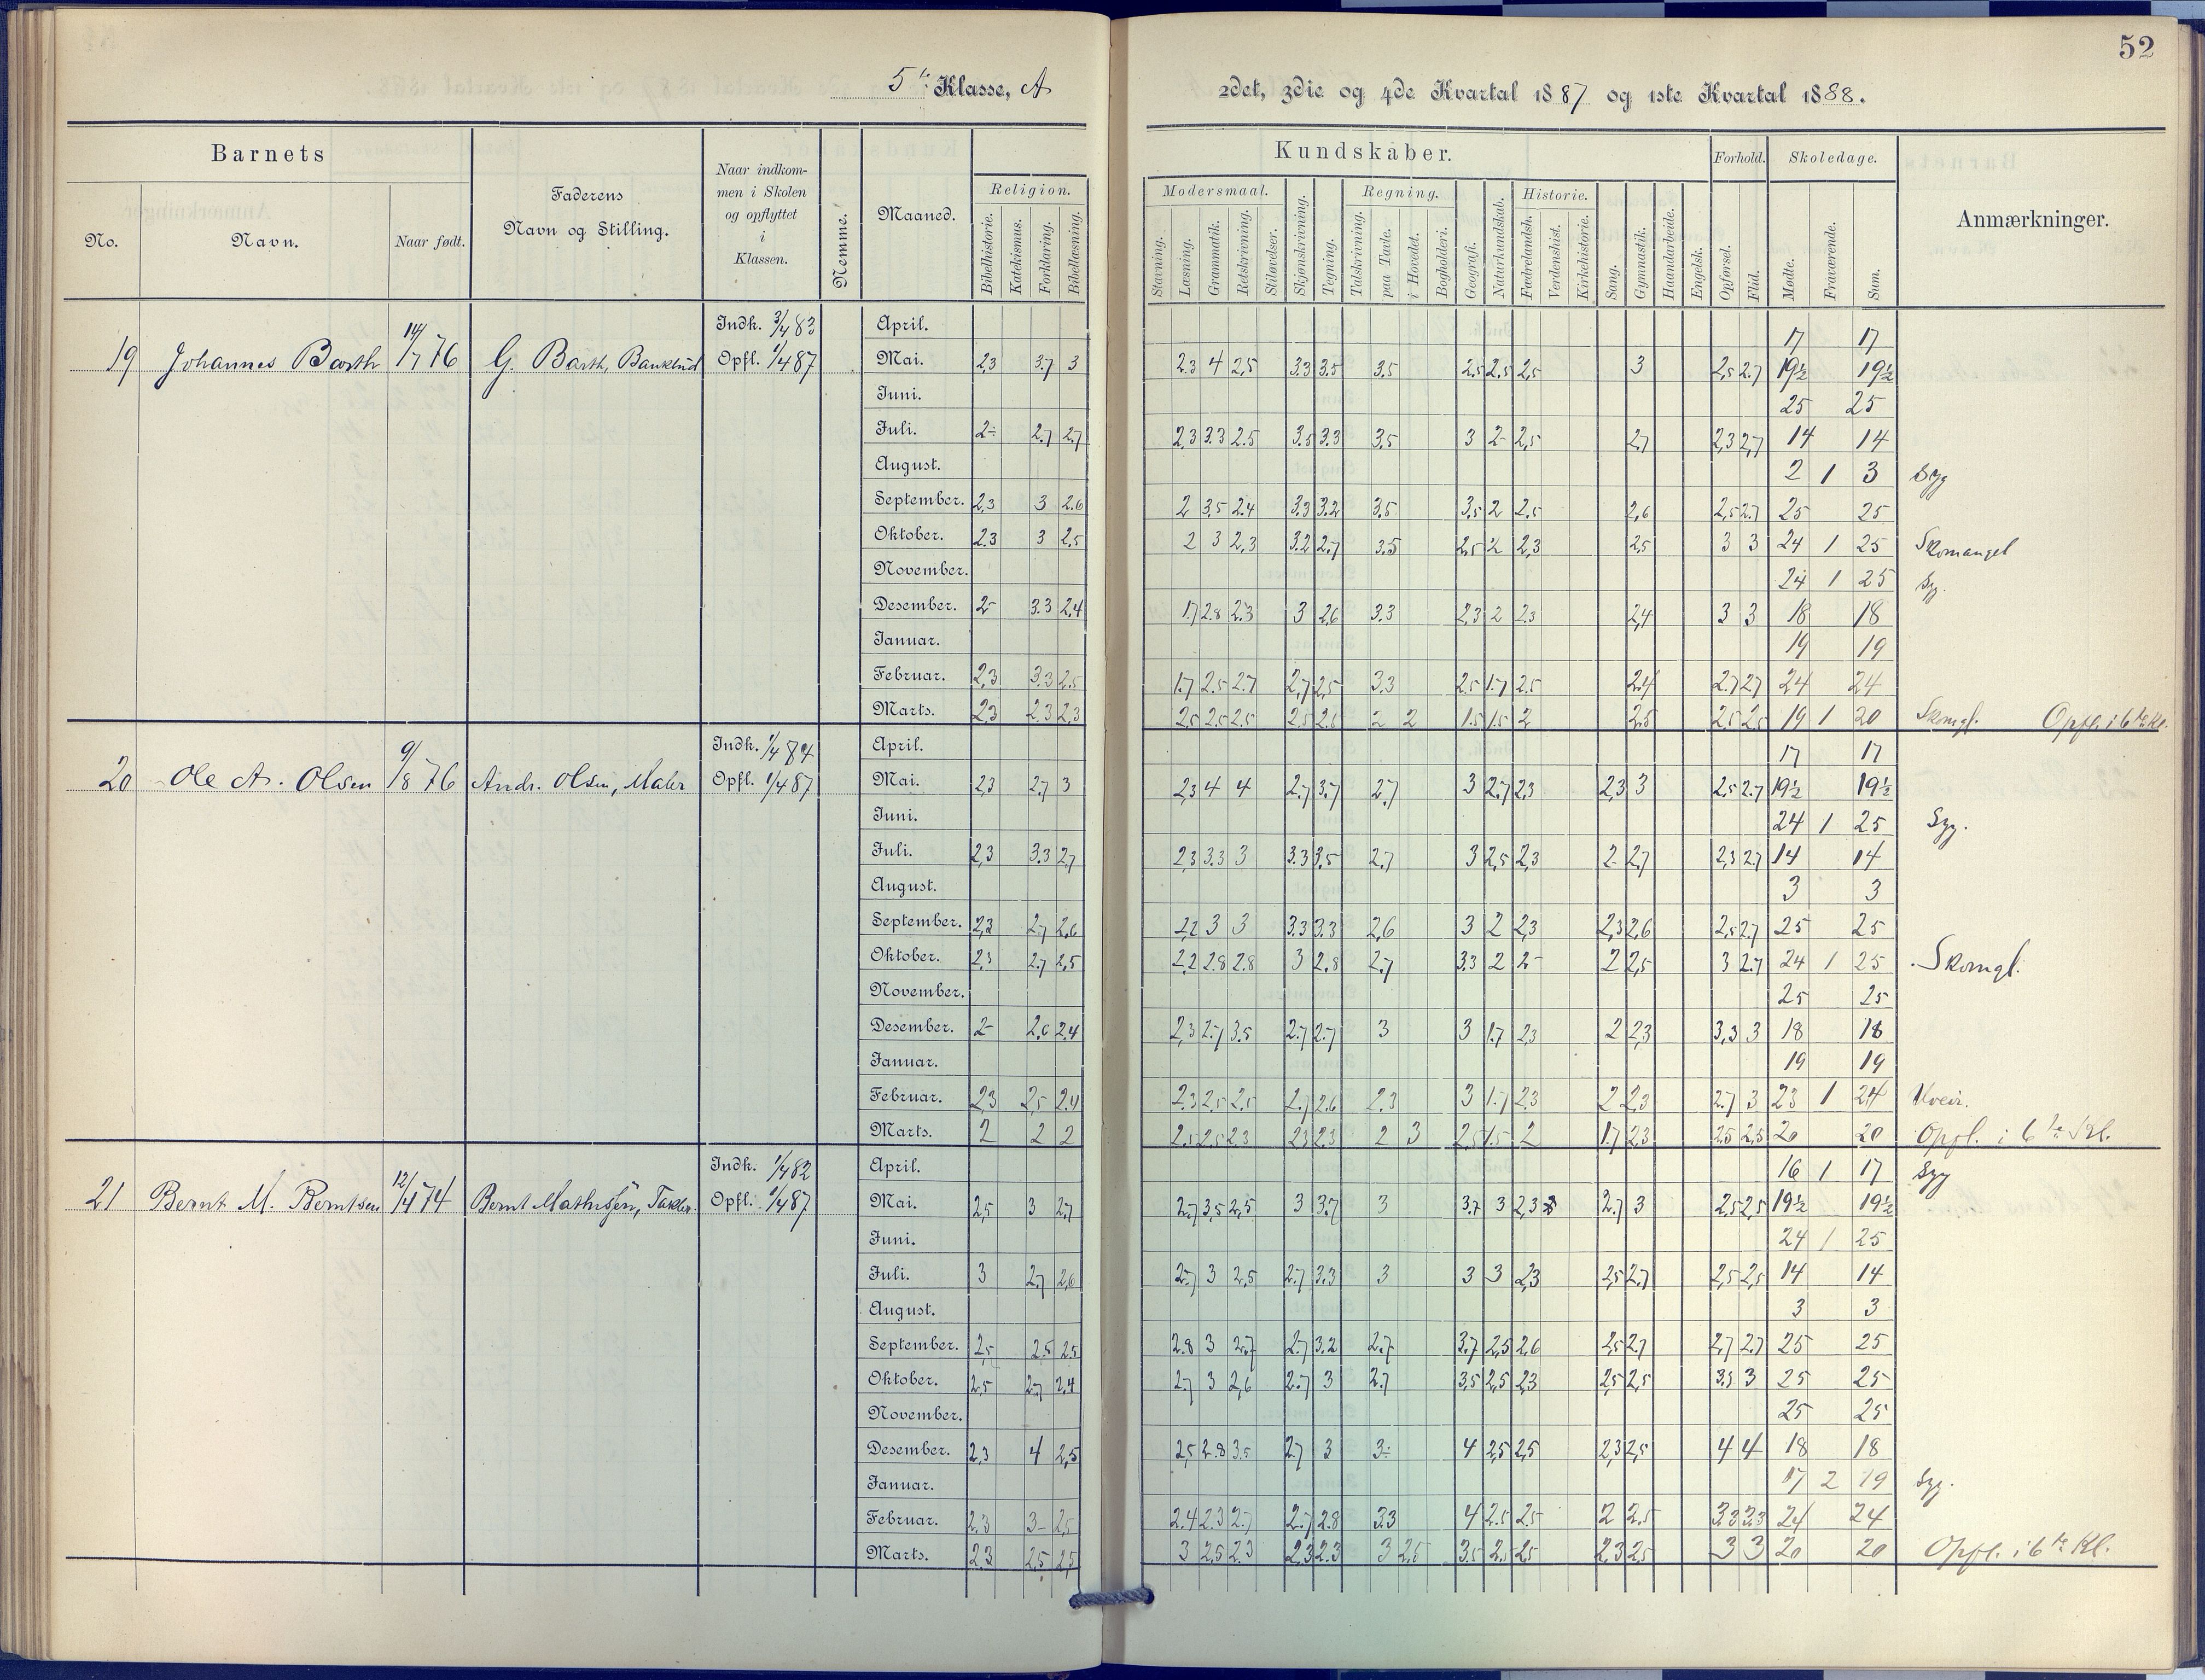 52
5te Klasse, A
2det, 3die og 4de Kvartal 1887 og 1ste Kvartal 1888.
Barnets
No.
Navn.
Naar født.
Faderens
Navn og Stilling.
Naar indkom-
men i Skolen
og opflyttet
i
Klassen.
Nemme.
Maaned.
Kundskaber.
Religion.
Bibelhistorie.
Katekismus.
Forklaring.
Bibellæsning.
Modersmaal.
Stavning.
Læsning.
Grammatik.
Retskrivning.
Stiløvelser.
Skjønskrivning.
Tegning.
Regning.
Talskrivning.
paa Tavle.
i Hovedet.
Bogholderi.
Geografi.
Naturkundskab.
Historie.
Fædrelandsh.
Verdenshist.
Kirkehistorie.
Sang.
Gymnastik.
Haandarbeide.
Engelsk.
Forhold.
Opførsel.
Flid.
Skoledage.
Mødte.
Fraværende.
Sum.
Anmærkninger.
19 Johannes Barth 14/7 76 G. Barth, Indk. 3/4 83 Opfl. 1/4 87
April. 17 17
Mai. 2,3 3.7 3 2.3 4 2,5 3.3 3.5 3.5 2.5 2.5 2,5 3 2,5 2.7 19½ 19½
Juni. 25 25
Juli. 2÷ 2.7 2.7 2.3 3.3 2.5 3.5 3.3 3.5 3 2- 2,5 2.7 2,3 2,7 14 14
August. 2 1 3 Syg
September. 2,3 3 2.6 2 3.5 2.4 3.3 3.2 3.5 3.5 2 2.5 2,6 2,5 2.7 25 25
Oktober. 2.3 3 2.5 2 3 2,3 3.2 2.7 3.5 2.5 2 2,3 2,5 3 3 24 1 25 Skomangel
November. 24 1 25 Syg.
Desember. 2- 3.3 2,4 1.7 2.8 2.3 3 2.6 3.3 2,3 2 2.3 2,4 3 3 18 18
Januar. 19 19
Februar. 2,3 3.3 2.5 1.7 2.5 2.7 2,7 2,5 3.3 2.5 1.7 2.5 2.4 2.7 2.7 24 24
Marts. 2.3 2.3 2.3 2.5 2.5 2.5 2.5 2.6 2 2 1.5 1.5 2 2.5 2.5 2.5 19 1 20 Skomgl. Opfl. i 6te Kl.
20 Ole A. Olsen 9/8 76 Andr. Olsen, Maler Indk. 1/4 84 Opfl. 1/4 87
April. 17 17
Mai. 2,3 2.7 3 2,3 4 4 2.7 3.7 2.7 3 2.7 2.3 2.3 3 2.5 2.7 19½ 19½
Juni. 24 1 25 Syg.
Juli. 2,3 3.3 2.7 2.3 3.3 3 3.3 3.5 2.7 3 2,5 2,3 2- 2,7 2,3 2.7 14 14
August. 3 3
September. 2,3 2.7 2,6 2,2 3 3 3.3 3.3 2,6 3 2 2,3 2,3 2,6 2,5 2.7 25 25
Oktober. 2.3 2.7 2,5 2,2 2.8 2.8 3 2,8 2.7 3.3 2 2- 2 2,5 3 2.7 24 1 25 Skomgl.
November. 25 25
Desember. 2- 2.6 2.4 2,3 2.7 3.5 2.7 2.7 3 3 1.7 2,3 2 2,3 3,3 3 18 18
Januar. 19 19
Februar. 2,3 2,5 2.4 2.3 2.5 2.5 2.7 2.6 2.3 3 1.7 2.3 2 2.3 2.7 3 23 1 24 Uveir.
Marts. 2 2 2 2.5 2.5 2.3 2.3 2.3 2 3 2,5 1.5 2 1.7 2.3 2.5 2.5 20 20 Opfl. i 6te Kl.
21 Bernt M. Berntsen 12/4 74 Bernt Mathisen, Indk. 1/4 82 Opfl. 1/4 87
April. 16 1 17 Syg
Mai. 2,5 3 2.7 2.7 3,5 2,5 3 3.7 3 3.7 3 2,3 2.7 3 2,5 2,5 19½ 19½
Juni. 24 1 25
Juli. 3 2.7 2,6 2.7 3 2,5 2.7 3.3 3 3 3 2,3 2,5 2.7 2,5 2,5 14 14
August. 3 3
September. 2,5 2.5 2.5 2.8 3 2.7 2.7 3.2 2.7 3.7 2,5 2,6 2,5 2.7 2.7 2.7 25 25
Oktober. 2,5 2.7 2.4 2.7 3 2,6 2.7 3 2.7 3,5 2,5 2,3 2,5 2,5 3.3 3 25 25
November. 25 25
Desember. 2,3 4 2,5 2,5 2.8 3.5 2.7 3 3÷ 4 2,5 2,5 2,3 2,5 4 4 18 18
Januar. 17 2 19 Syg.
Februar. 2.3 3- 2,5 2.4 2.3 2.7 2.7 2.8 3.3 4 2.5 2.5 2 2.5 3.3 3.3 24 24
Marts. 2.3 2.5 2,5 3 2.5 2.3 2.3 2.3 3 2.5 3.5 2.5 2.5 2.3 2.5 3 3 20 20 Opfl. i 6te Kl.